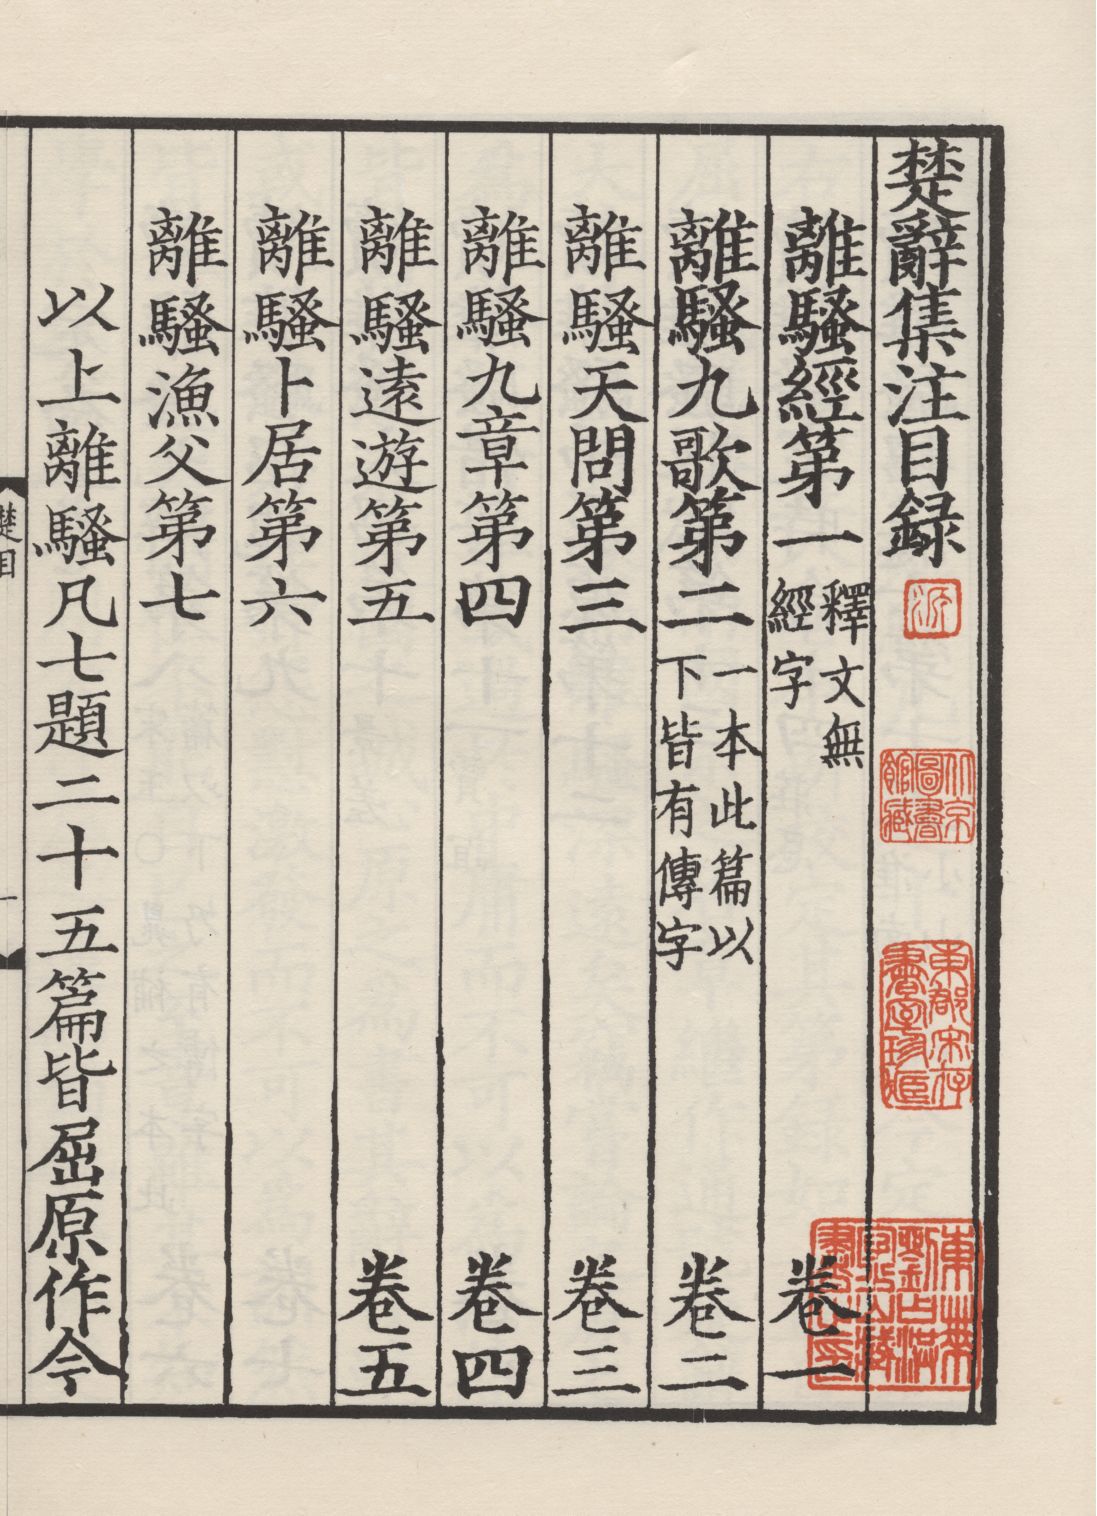 楚辭集注目録
離騷經第一 釋文無經字 卷一
離騷九歌第二 一本此篇以下皆有傳字 卷二
離騷天問第三 卷三
離騷九章第四 卷四
離騷遠遊第五 卷五
離騷卜居第六
離騷漁父第七
以上離騷凡七題二十五篇皆屈原作今
楚目
一
北京圖書館藏
東郡宋存書室珍藏